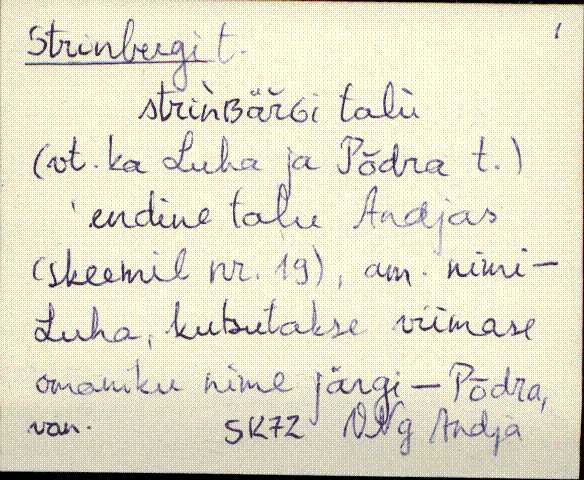 Strinbergi t. 1
strìnBäřGi talù
(vt. ka Luha ja Põdra t.)
endine talu Andjas
(skeemil nr. 19), am. nimi—
Luha, kutsutakse viimase
omaniku nime järgi — Põdra,
van. SK72 VNg Andja